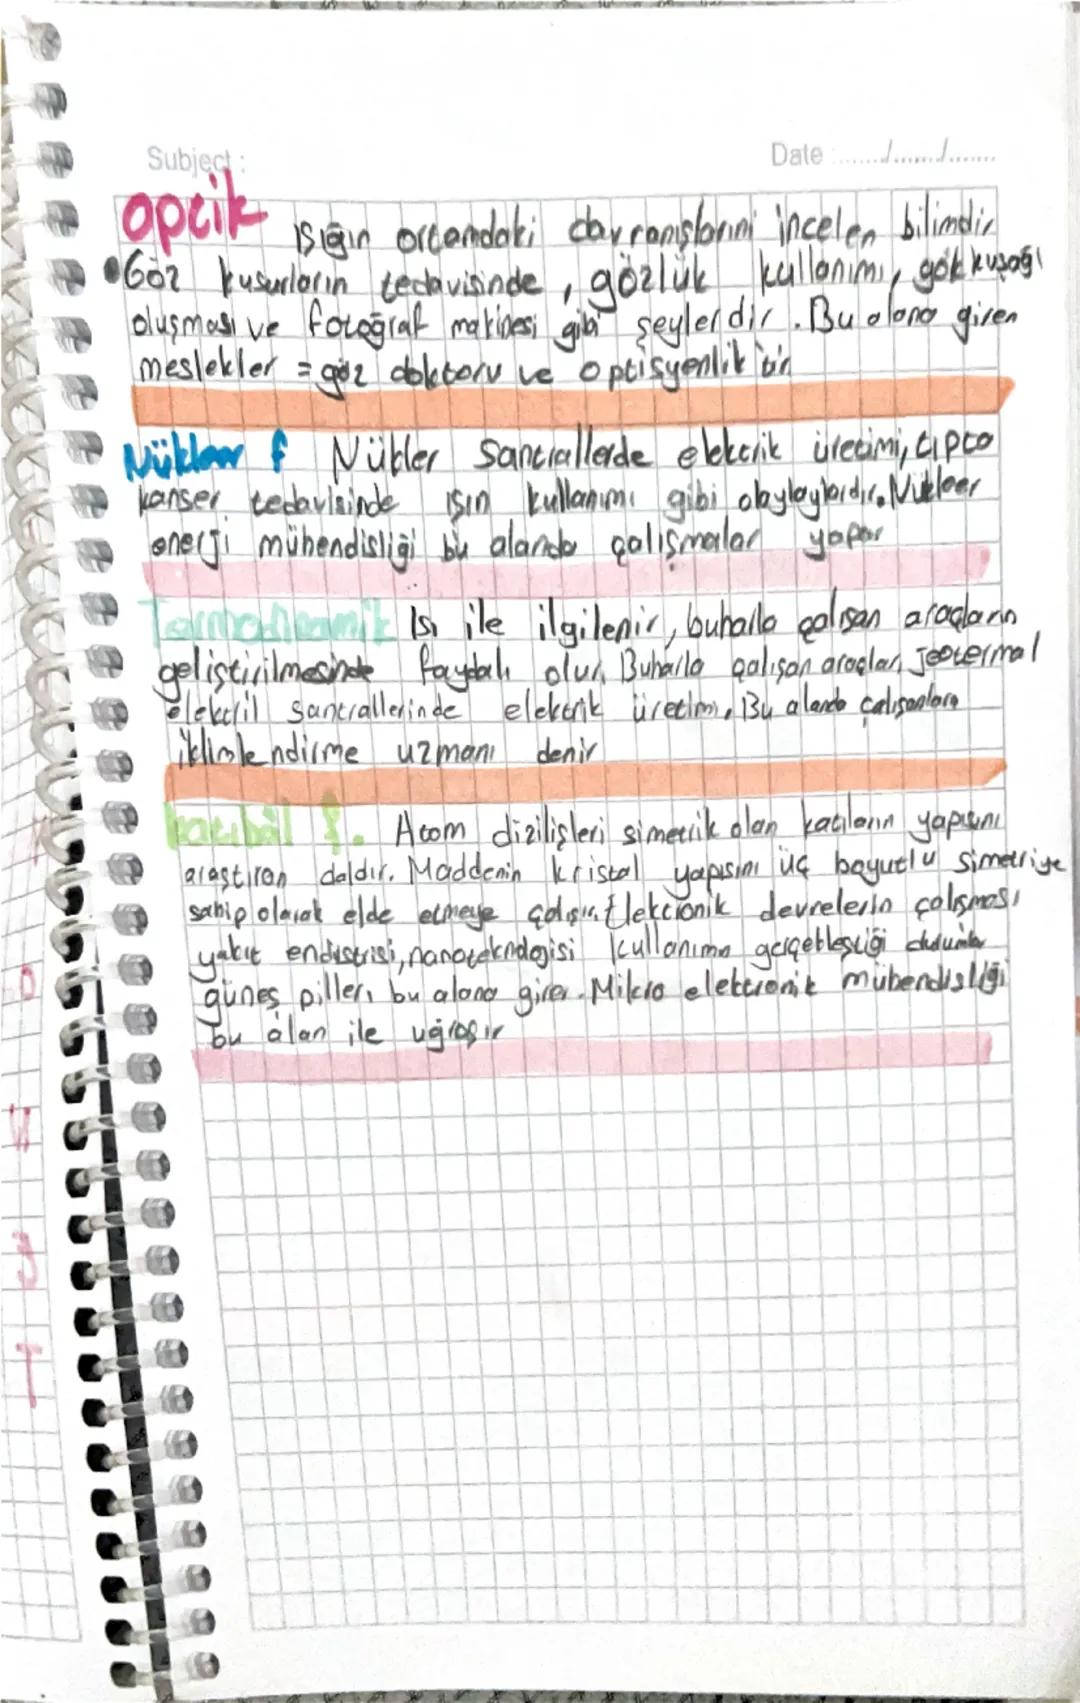 Subject :
Date ....../....../......
optik ışığın ortamdaki davranışlarını incelen bilimdir
• Göz kusurların tedavisinde, gözlük kullanımı, gökkuşağı
oluşması ve fotoğraf makinesi gibi şeylerdir. Bu alana giren
meslekler = göz doktoru ve optisyenlik'tir
Nükleer f Nükler santrallerde elektrik üretimi, tıpta
kanser tedavisinde ışın kullanımı gibi olaylaylardır. Nükleer
enerji mühendisliği bu alanda çalışmalar yapar
Termodinamik Isı ile ilgilenir, buharla çalışan araçların
geliştirilmesinde faydalı olur. Buharla çalışan araçlar, jeotermal
elektril santrallerinde elektrik üretimi, Bu alanda çalışanlara
iklimlendirme uzmanı denir
katıhâl f. Atom dizilişleri simetrik olan katıların yapısını
araştıran daldır. Maddenin kristal yapısını üç boyutlu simetriye
sahip olarak elde etmeye çalışır. Elektronik devrelerin çalışması
yakıt endüstrisi, nanoteknolojisi kullanımın gerçekleştiği durumlar
güneş pilleri bu alana girer. Mikro elektronik mühendisliği
bu alan ile uğraşır